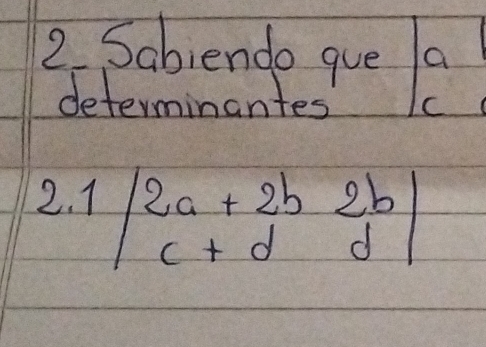 2- Sabiendo que |a
determinantes |c
2.1 |2a + 2b 2b|
|c + d d|